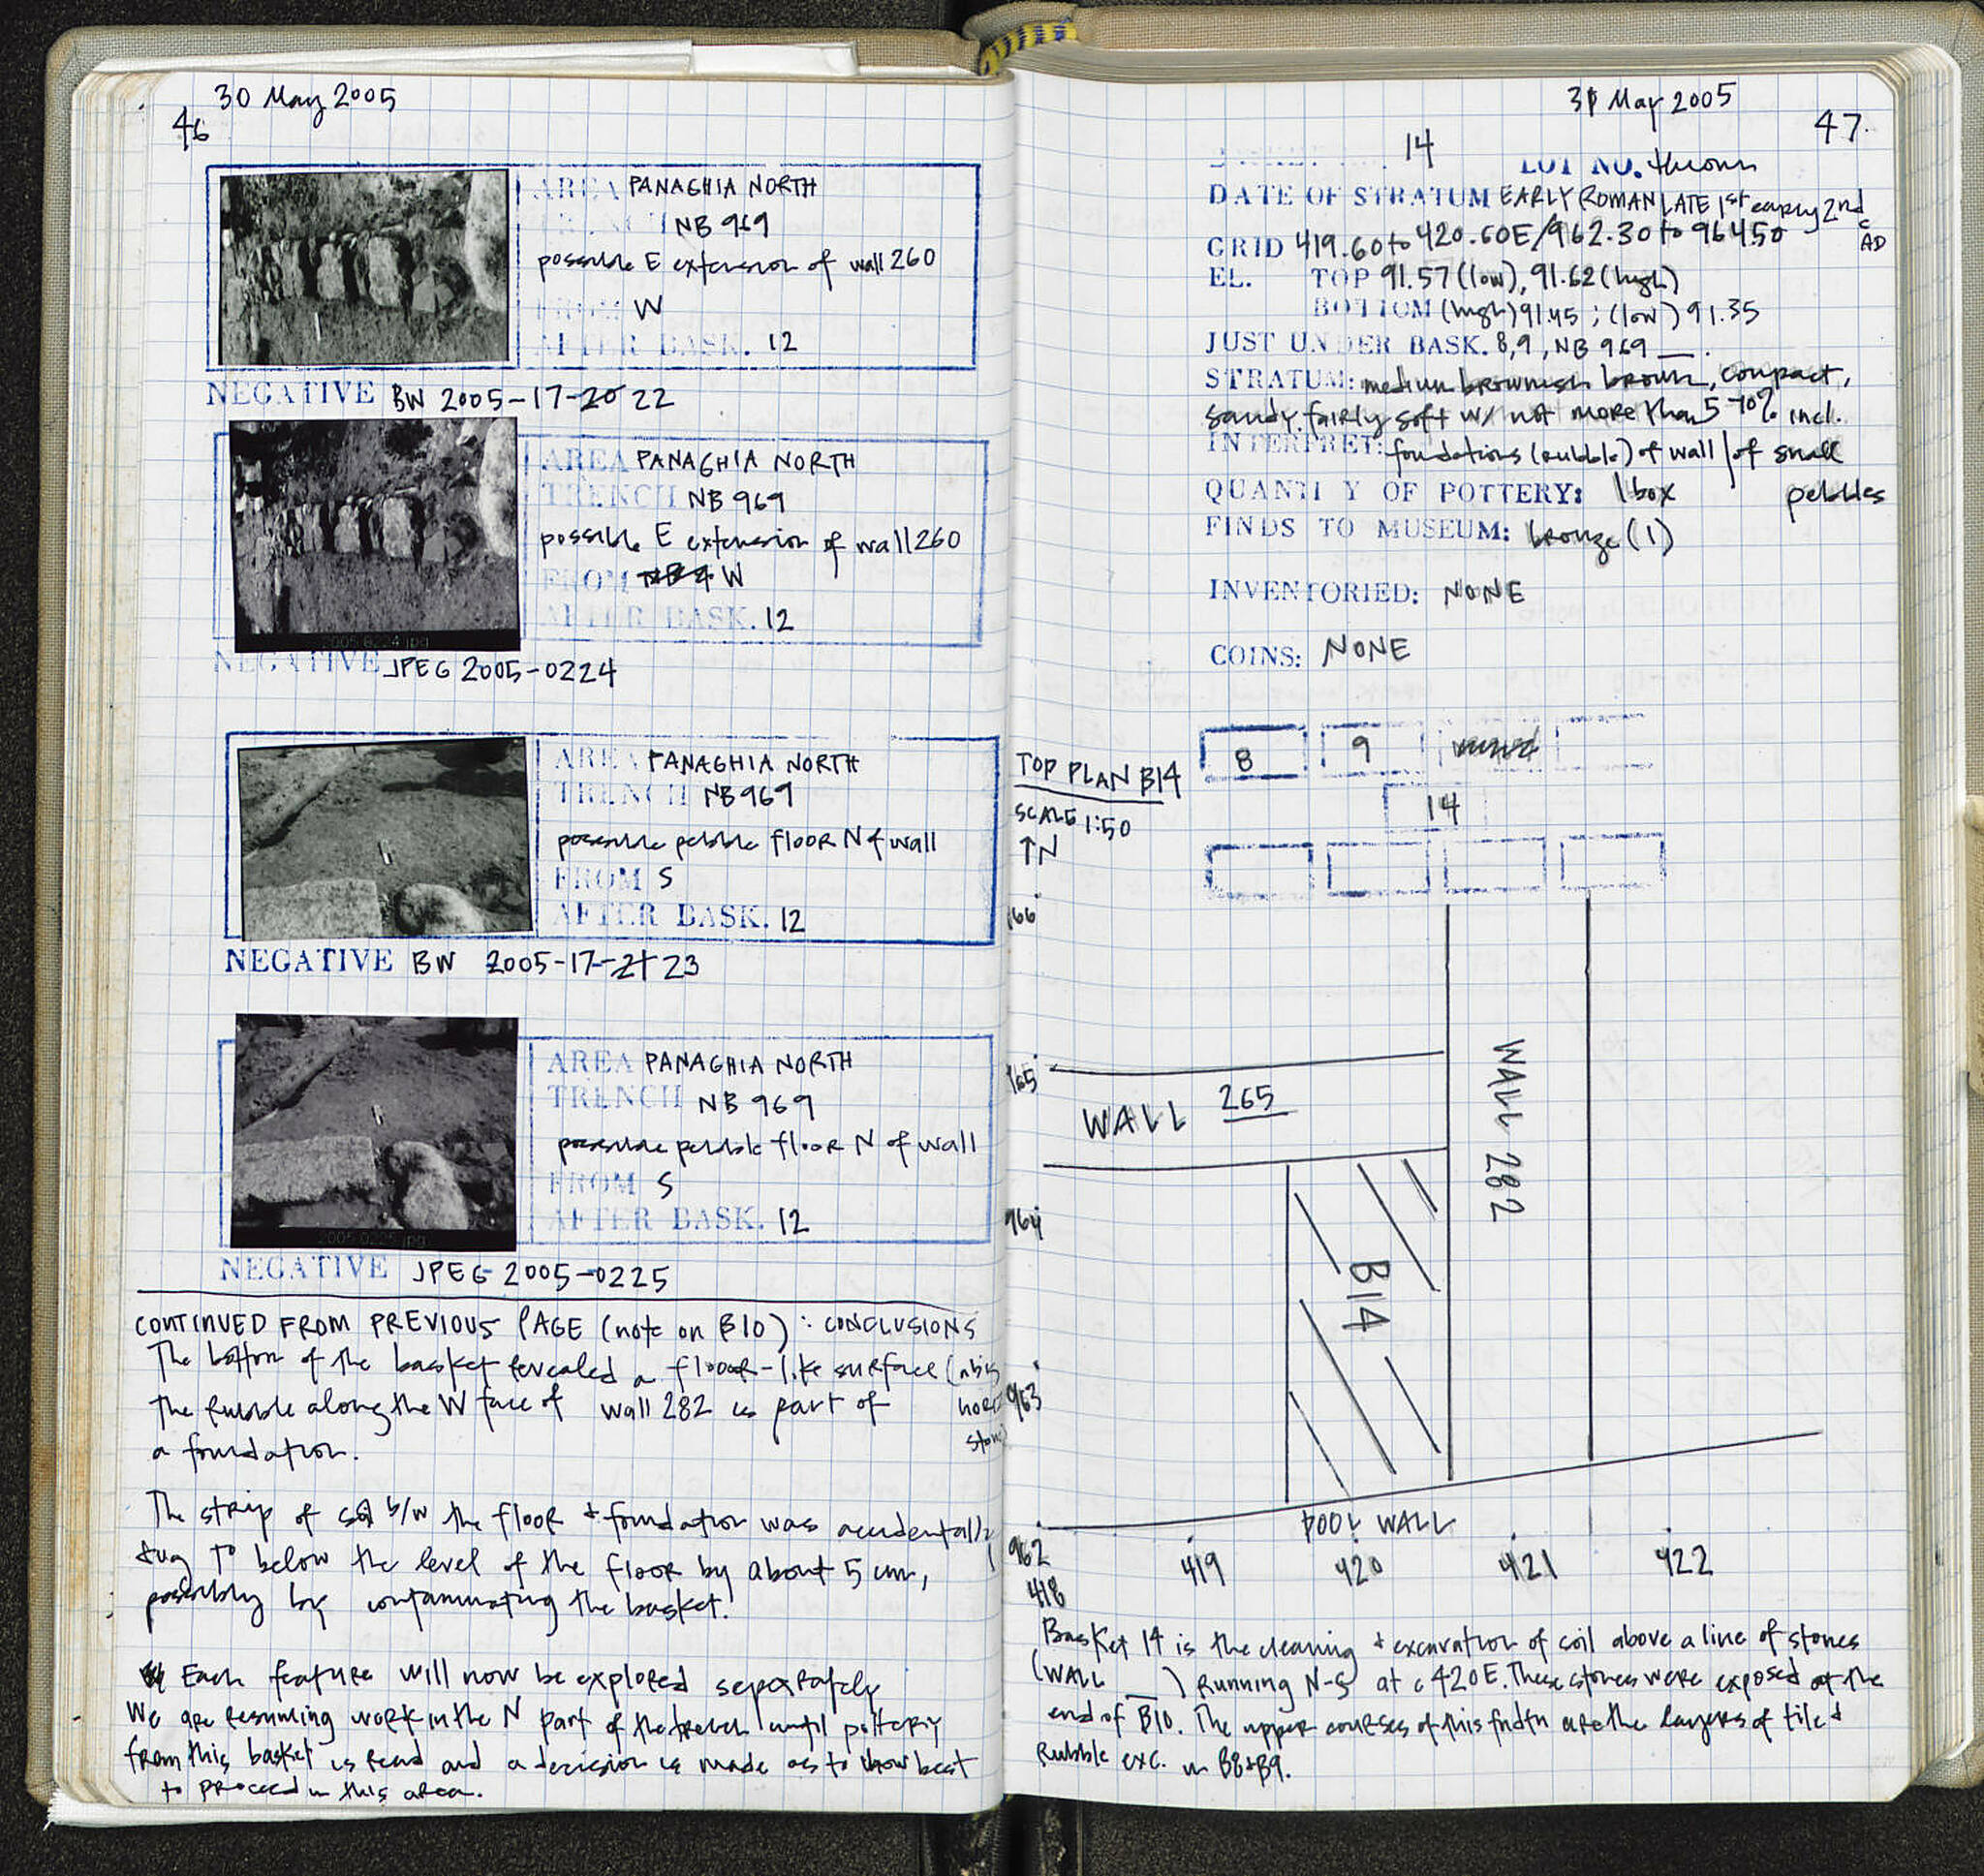 30 May 2005
46
AREA PANAGHIA NORTH
TRENCH NB 969
possible E extension of wall 260
FROM W
AFTER BASK. 12
NEGATIVE BW 2005-17-20 22
AREA PANAGHIA NORTH
TRENCH NB 969
possible E extension of wall 260
FROM W
AFTER BASK. 12
2005-0224.jpg
NEGATIVE JPEG 2005-0224
AREA PANAGHIA NORTH
TRENCH NB 969
possible pebble floor N of wall
FROM S
AFTER BASK. 12
NEGATIVE BW 2005-17-21 23
AREA PANAGHIA NORTH
TRENCH NB 969
possible pebble floor N of wall
FROM S
AFTER BASK. 12
2005-0225.jpg
NEGATIVE JPEG 2005-0225
CONTINUED FROM PREVIOUS PAGE (note on B10): CONCLUSIONS
The bottom of the basket revealed a floor-like surface
the rubble along the W face of wall 282 is part of
a foundation.
The strip of soil b/w the floor + foundation was accidentally
dug to below the level of the floor by about 5 cm,
possibly by contaminating the basket.
Each feature will now be explored separately
We are resuming work in the N part of the trench until pottery
from this basket is read and a decision is made as to how best
to proceed in this area.
31 May 2005
47
14
LOT NO. thrown
DATE OF STRATUM EARLY ROMAN LATE 1st early 2nd c AD
GRID 419.60 to 420.60E/962.30 to 964.50
EL. TOP 91.57 (low), 91.62 (high)
BOTTOM (high) 91.45; (low) 91.35
JUST UNDER BASK. 8,9, NB 969 __.
STRATUM: medium brownish brown, compact,
sandy, fairly soft w/ not more than 5-10% incl.
INTERPRET: foundations (rubble) of wall / of small
pebbles
QUANTITY OF POTTERY: 1 box
FINDS TO MUSEUM: bronze (1)
INVENTORIED: NONE
COINS: NONE
8 9
14
TOP PLAN B14
SCALE 1:50
↑N
966
965
964
963
962
418
419 420 421 422
WALL 265
WALL 282
B14
POOL WALL
Basket 14 is the cleaning + excavation of soil above a line of stones
(WALL __) running N-S at c 420E. These stones were exposed at the
end of B10. The upper courses of this fndtn are the layers of tile +
Rubble exc. in B8+B9.